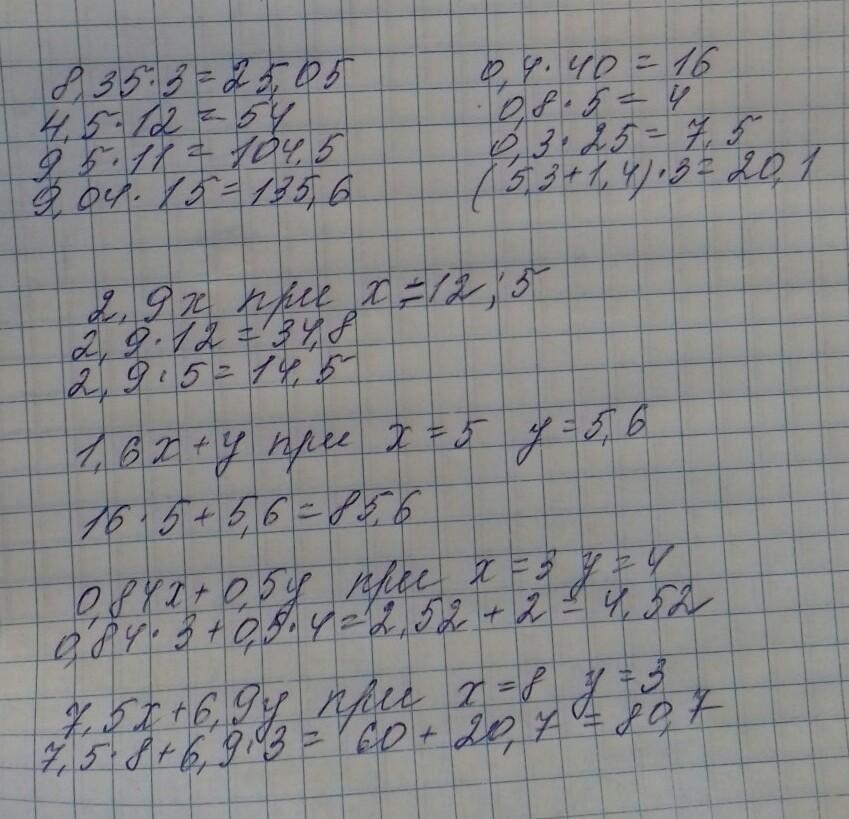 8,35·3=25,05
4,5·12=54
9,5·11=104,5
9,04·15=135,6
0,4·40=16
0,8·5=4
0,3·25=7,5
(5,3+1,4)·3=20,1
2,9x при x=12; 5
2,9·12=34,8
2,9·5=14,5
1,6x+y при x=5 y=5,6
16·5+5,6=85,6
0,84x+0,5y при x=3 y=4
0,84·3+0,5·4=2,52+2=4,52
7,5x+6,9y при x=8 y=3
7,5·8+6,9·3= 60+20,7=80,7